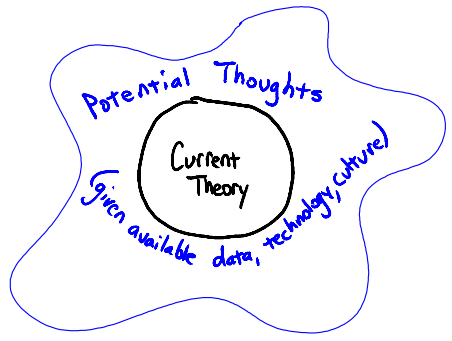 Potential Thoughts
Current
Theory
(given available data, technology, culture)